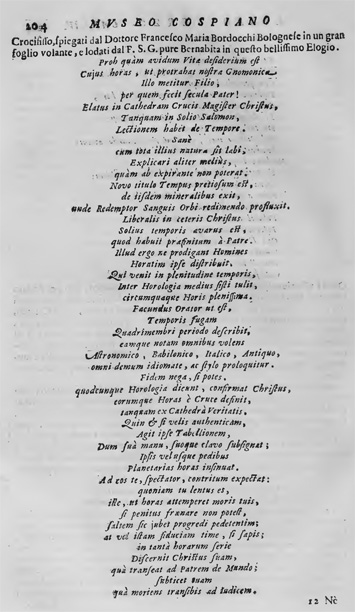 204 MVSEO COSPIANO
Crocifisso, spiegati dal Dottore Francesco Maria Bordocchi Bolognese in un gran
foglio volante, e lodati dal P. S. G. pure Bernabita in questo bellissimo Elogio.
Proh quàm avidum Vitæ desiderium est
Cujus horas, ut protrahas nostra Gnomonica
Illo metitur Filio;
per quem fecit sæcula Pater!
Elatus in Cathedram Crucis Magister Christus,
Tanquam in Solio Salomon,
Lectionem habet de Tempore.
Sanè
cum tota illius natura sit labi;
Explicari aliter meliùs,
quàm ab expirante non poterat.
Novo titulo Tempus pretiosum est,
de iisdem mineralibus exit,
unde Redemptor Sanguis Orbi redimendo profluxit.
Liberalis in ceteris Christus
Solius temporis avarus est,
quod habuit præfinitum à Patre.
Illud ergo ne prodigant Homines
Horatim ipse distribuit.
Qui venit in plenitudine temporis,
Inter Horologia medius sisti tulit,
circumquaque Horis plenissima.
Facundus Orator ut est,
Temporis fugam
Quadrimembri periodo describit,
eamque notam omnibus volens
Astronomico, Babilonico, Italico, Antiquo,
omni demum idiomate, ac stylo proloquitur.
Fidem nega, si potes.
quodcunque Horologia dicunt, confirmat Christus,
eorumque Horas è Cruce definit,
tanquam ex Cathedrâ Veritatis.
Quin & si velis authenticam,
Agit ipse Tabellionem,
Dum suâ manu, suoque clavo subsignat;
Ipsis velusque pedibus
Planetarias horas insinuat.
Ad eos te, spectator, contritum expectat:
quoniam tu lentus es,
iste, ut horas attemperet moris tuis,
si penitus frænare non potest,
saltem sic jubet progredi pedetentim;
at vel istam fiduciam time, si sapis;
in tantâ horarum serie
Discernit Christus suam,
quâ transeat ad Patrem de Mundo;
subticet tuam
quâ moriens transibis ad Iudicem.
12 Nè